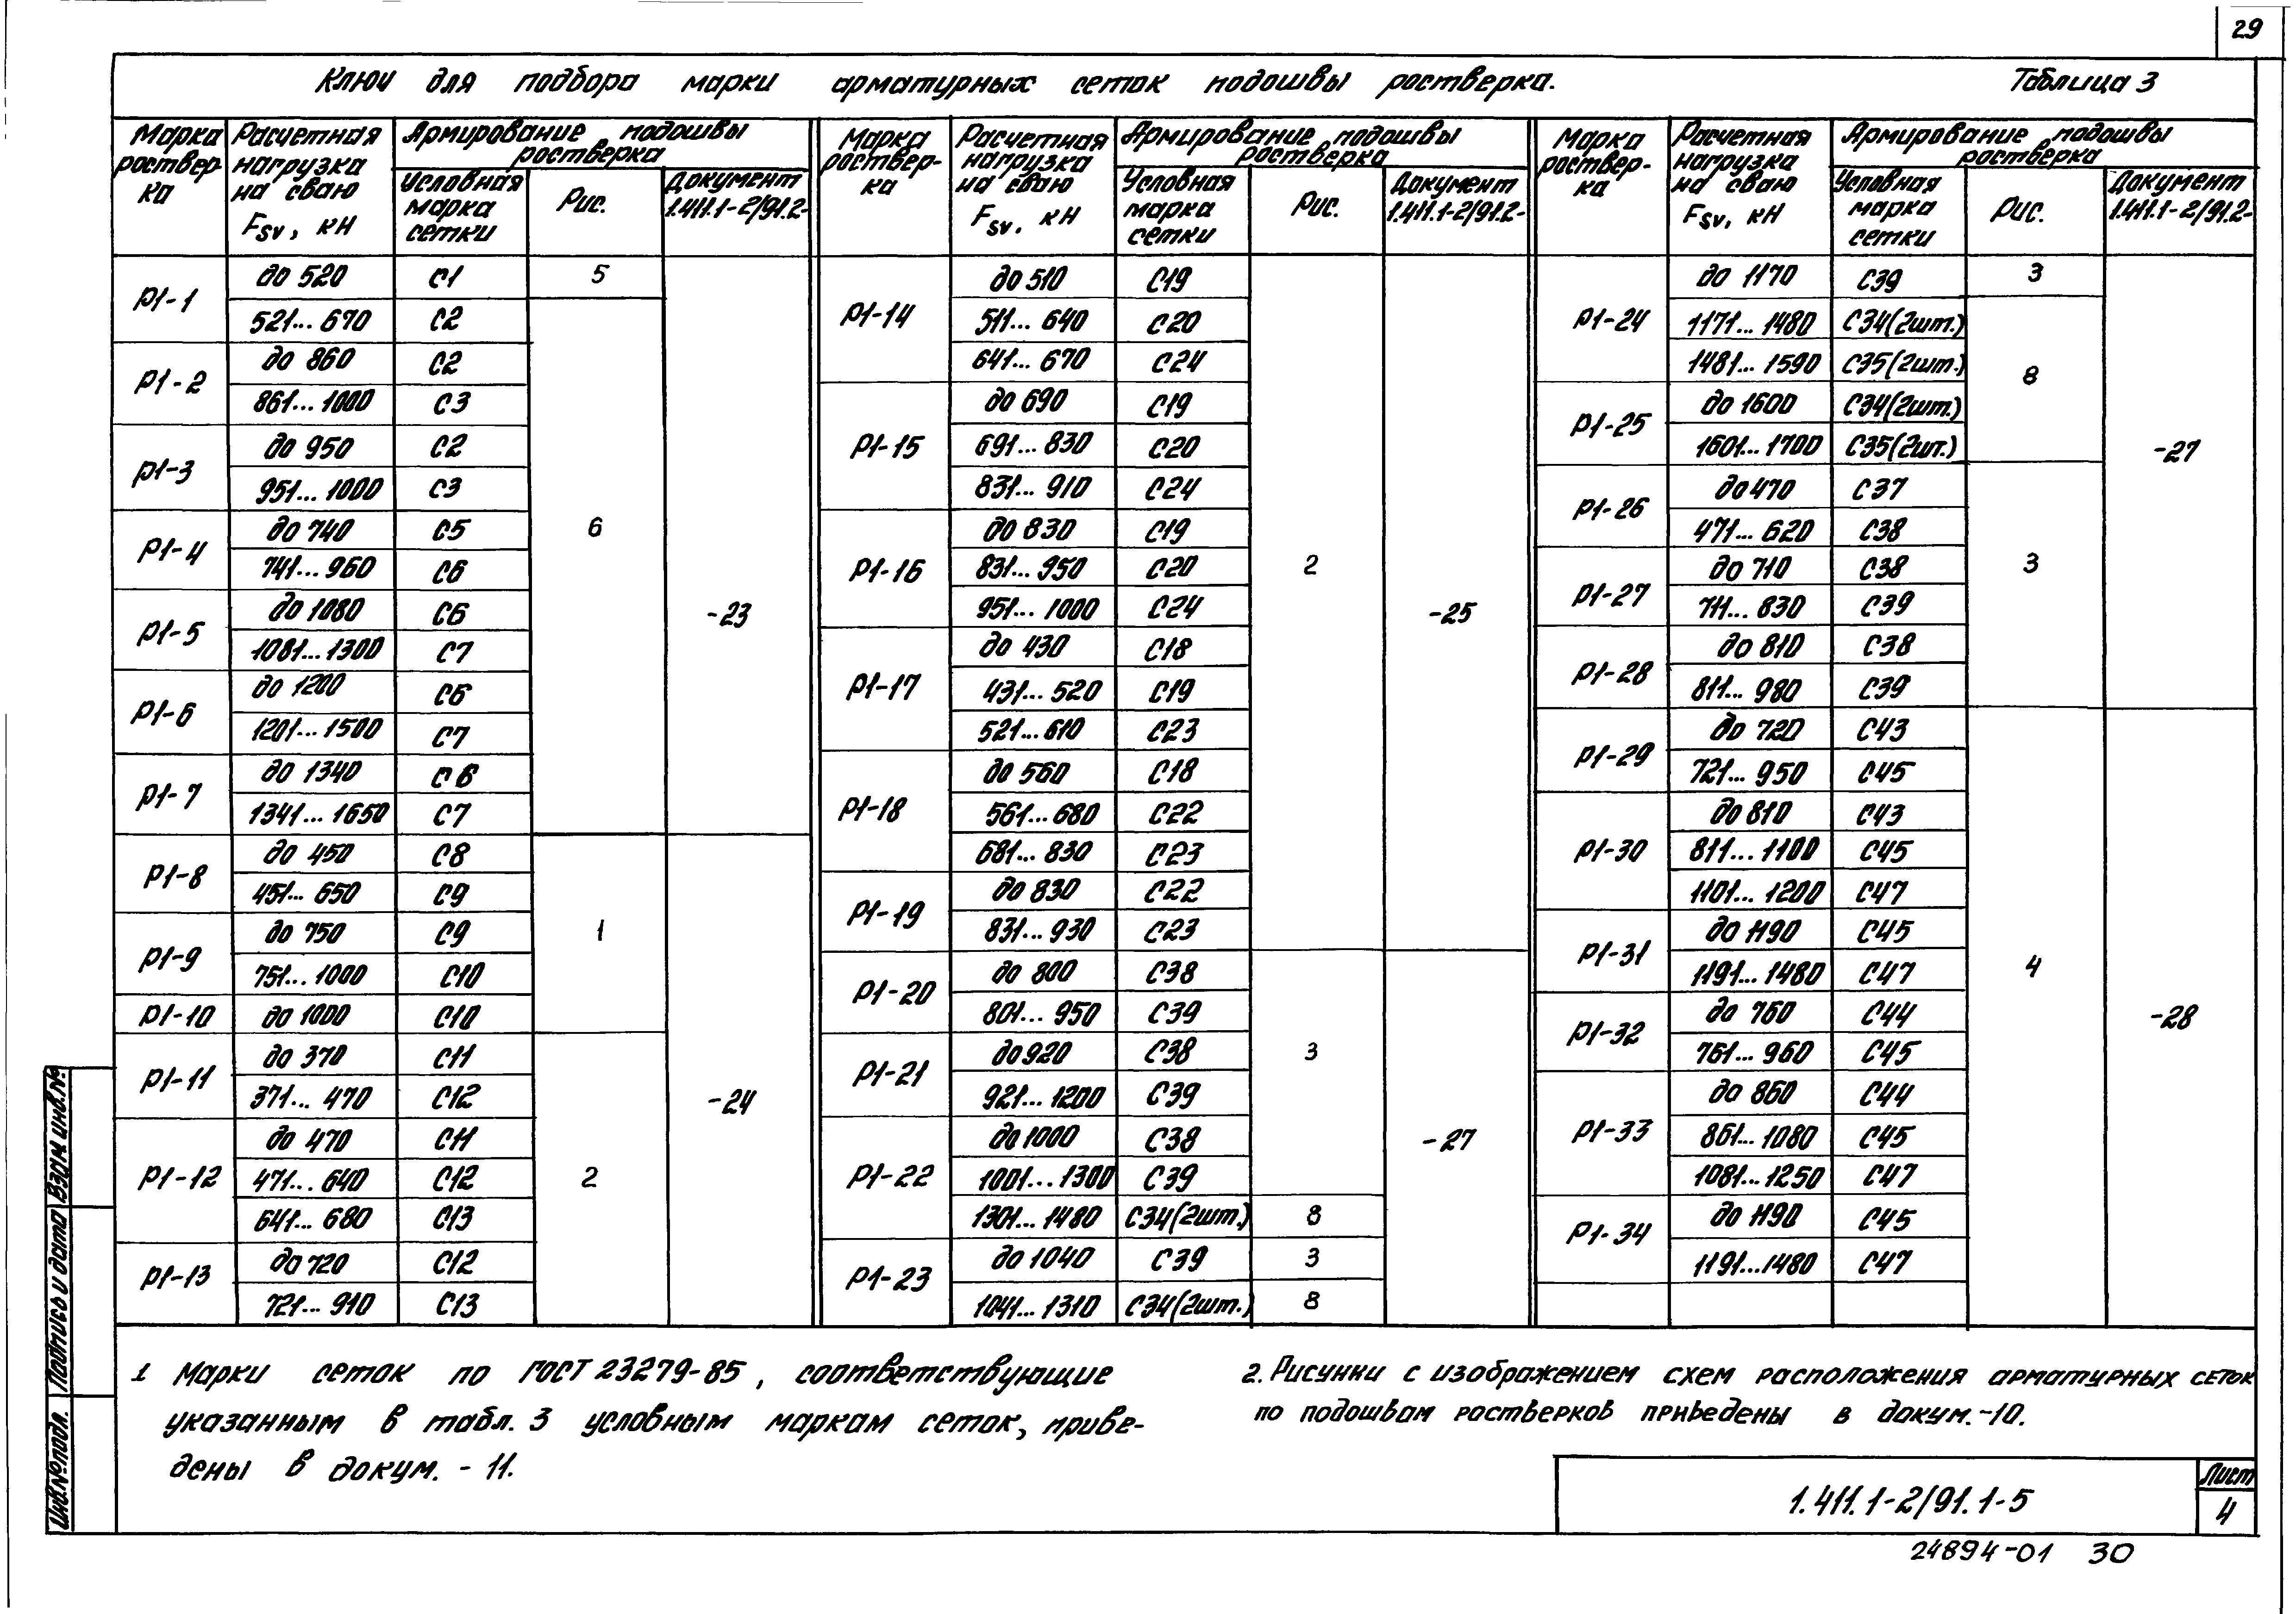 29
Ключ для подбора марки арматурных сеток подошвы ростверка. Таблица 3
Марка ростверка | Расчетная нагрузка на сваю Fsv, кН | Армирование подошвы ростверка
Условная марка сетки | Рис. | Документ 1.411.1-2/91.2-
Р1-1 до 520 С1 5
521... 670 С2
Р1-2 до 860 С2
861... 1000 С3
Р1-3 до 950 С2
951... 1000 С3
Р1-4 до 740 С5 6
741... 960 С6
Р1-5 до 1080 С6 -23
1081... 1300 С7
Р1-6 до 1200 С6
1201... 1500 С7
Р1-7 до 1340 С6
1341... 1650 С7
Р1-8 до 450 С8
451... 650 С9
Р1-9 до 750 С9 1
751... 1000 С10
Р1-10 до 1000 С10
Р1-11 до 370 С11
371... 470 С12 -24
Р1-12 до 470 С11
471... 640 С12 2
641... 680 С13
Р1-13 до 720 С12
721... 910 С13
Марка ростверка | Расчетная нагрузка на сваю Fsv, кН | Армирование подошвы ростверка
Условная марка сетки | Рис. | Документ 1.411.1-2/91.2-
Р1-14 до 510 С19
511... 640 С20
641... 670 С24
Р1-15 до 690 С19
691... 830 С20
831... 910 С24
Р1-16 до 830 С19
831... 950 С20 2
951... 1000 С24 -25
Р1-17 до 430 С18
431... 520 С19
521... 610 С23
Р1-18 до 560 С18
561... 680 С22
681... 830 С23
Р1-19 до 830 С22
831... 930 С23
Р1-20 до 800 С38
801... 950 С39
Р1-21 до 920 С38 3
921... 1200 С39
Р1-22 до 1000 С38 -27
1001... 1300 С39
1301... 1480 С34(2шт.) 8
Р1-23 до 1040 С39 3
1041... 1310 С34(2шт.) 8
Марка ростверка | Расчетная нагрузка на сваю Fsv, кН | Армирование подошвы ростверка
Условная марка сетки | Рис. | Документ 1.411.1-2/91.2-
Р1-24 до 1170 С39 3
1171... 1480 С34(2шт.)
1481... 1590 С35(2шт.) 8
Р1-25 до 1600 С34(2шт.)
1601... 1700 С35(2шт.) -27
Р1-26 до 470 С37
471... 620 С38
Р1-27 до 710 С38 3
711... 830 С39
Р1-28 до 810 С38
811... 980 С39
Р1-29 до 720 С43
721... 950 С45
Р1-30 до 810 С43
811... 1100 С45
1101... 1200 С47
Р1-31 до 1190 С45 4
1191... 1480 С47
Р1-32 до 760 С44 -28
761... 960 С45
Р1-33 до 860 С44
861... 1080 С45
1081... 1250 С47
Р1-34 до 1190 С45
1191... 1480 С47
1 Марки сеток по ГОСТ 23279-85, соответствующие
указанным в табл. 3 условным маркам сеток, приве-
дены в докум. - 11.
2. Рисунки с изображением схем расположения арматурных сеток
по подошвам ростверков приведены в докум.-10.
Инв.№ подл. Подпись и дата Взам инв.№
1.411.1-2/91.1-5
Лист
4
24894-01 30